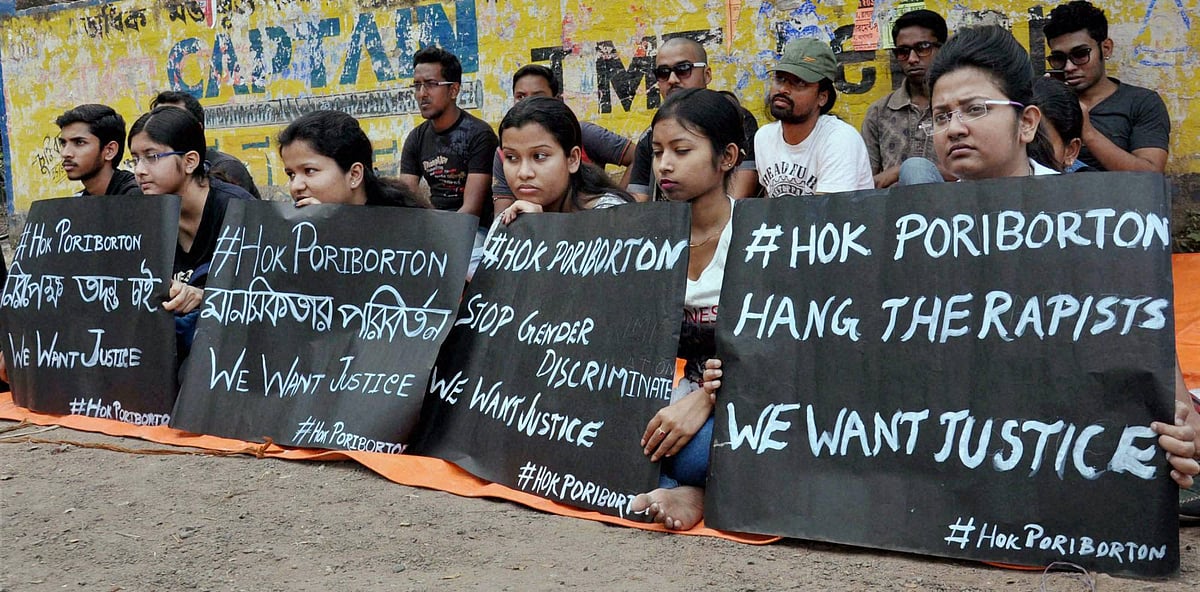 CAPTAIN
TMC
#HOK PORIBORTON
নিরপেক্ষ তদন্ত চাই
WE WANT JUSTICE
#HOK PORIBORTO
#HOK PORIBORTON
মানসিকতার পরিবর্তন
WE WANT JUSTICE
#HOK PORIBORTON
#HOK PORIBORTON
STOP GENDER
DISCRIMINATE
WE WANT JUSTICE
#HOK PORIBORTON
#HOK PORIBORTON
HANG THE RAPISTS
WE WANT JUSTICE
#HOK PORIBORTON